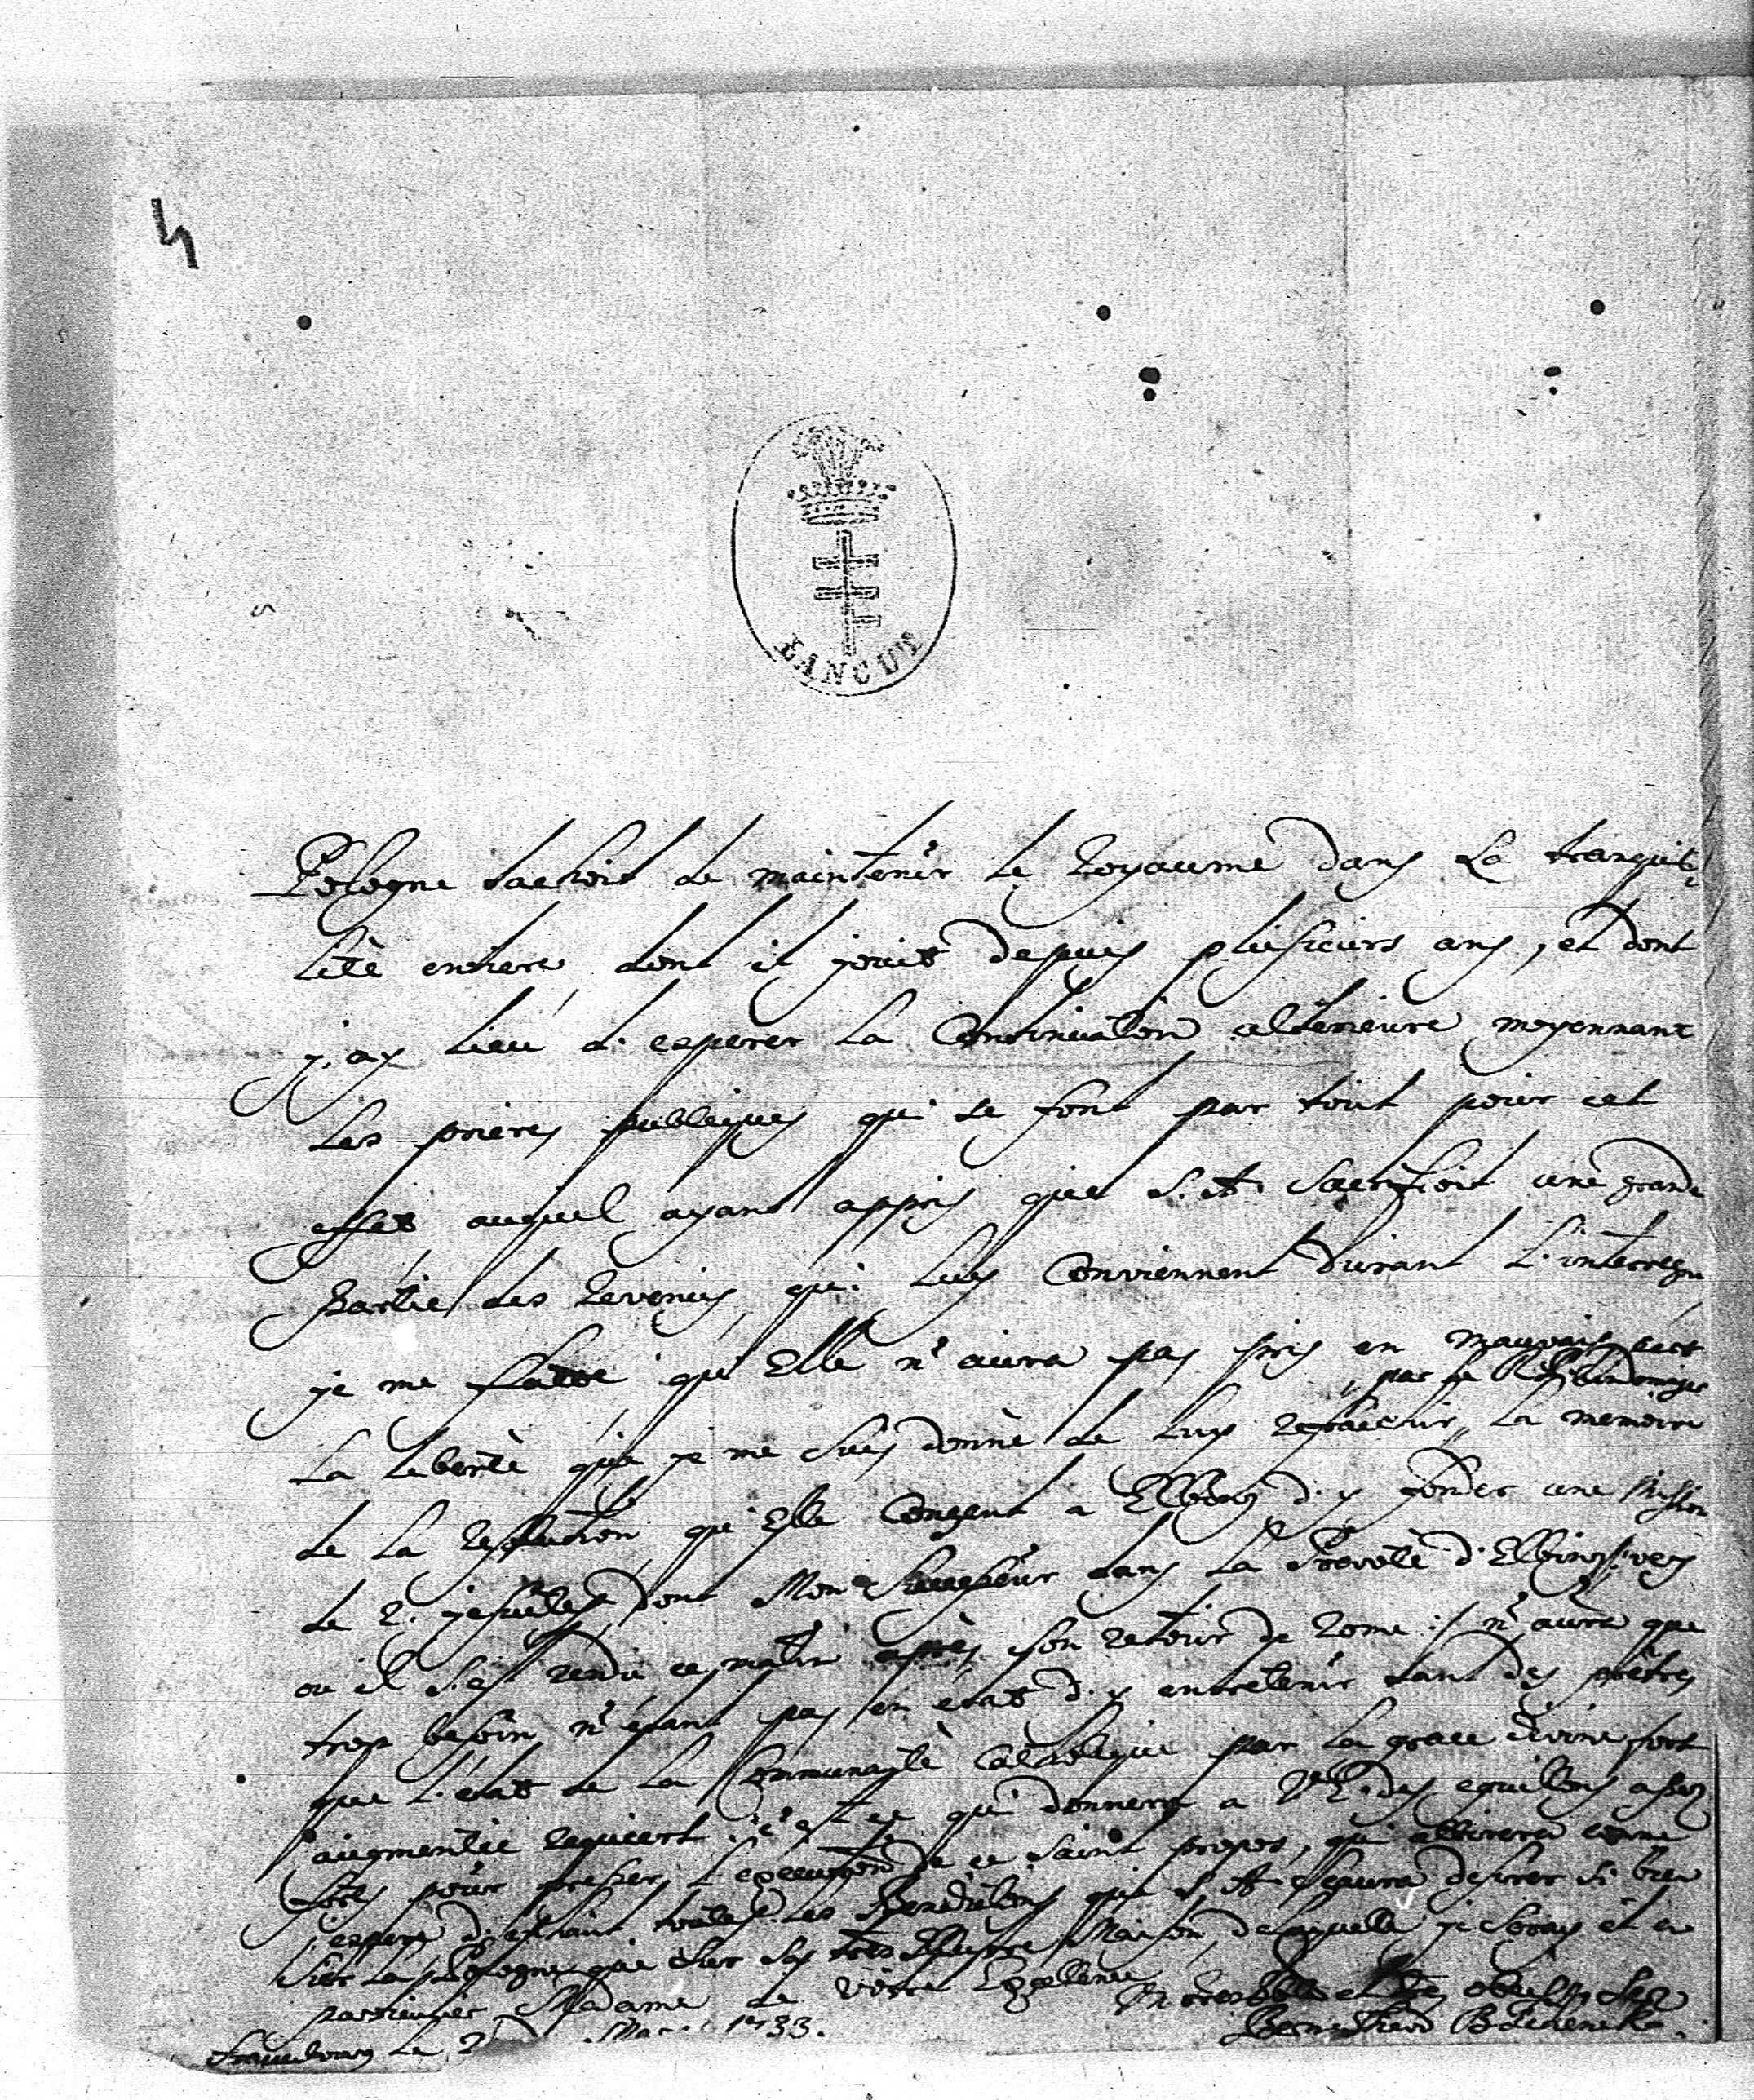 4
ŁAŃCUT
Pologne tachoit de maintenir le Royaume dans La tranquil-
lité entiere dont il jouit depuis plusieurs ans, et dont
j'ay lieu d'esperer la Continuation ulterieure moyennant
les prieres publiques qui se font par tout pour cet
effet auquel ayant appris que S. A. Sacrifioit une grande
partie des Revenus, qui luy Conviennent durant L'interregn
je me flatte qu'Elle n'aura pas pris en mauvaise
par le
La liberté que je me suis donnè de luy rafraichir la memoire
de La Resolution qu'Elle Conçeut a Elbing d'y fonder une Mission
de 2. jesuites, dont Mon Successeur dans la Prevotè d'Elbing vers
ou il s'est rendu ce matin après son retour de Rome :/ n'aura que
trop besoin n'étant pas en état d'y entretenir tant des prêtres
que l'état de La Communautè Catholique par la grace divine fort
augmentée requiert. c'est ce qui donnera a V. E. des eguillons assez
forts pour presser l'execution de ce saint propos, qui attirera comme
j'espere d'enhaut toutes les Benedictions que S. A. sçaura desirer si bien
sur la Pologne que sur Sa très Illustre Maison, de laquelle je seray et en
particulier Madame de Vôtre Excellence
très humble et très obeiss
frauenbourg Le 2 Mar 1733.